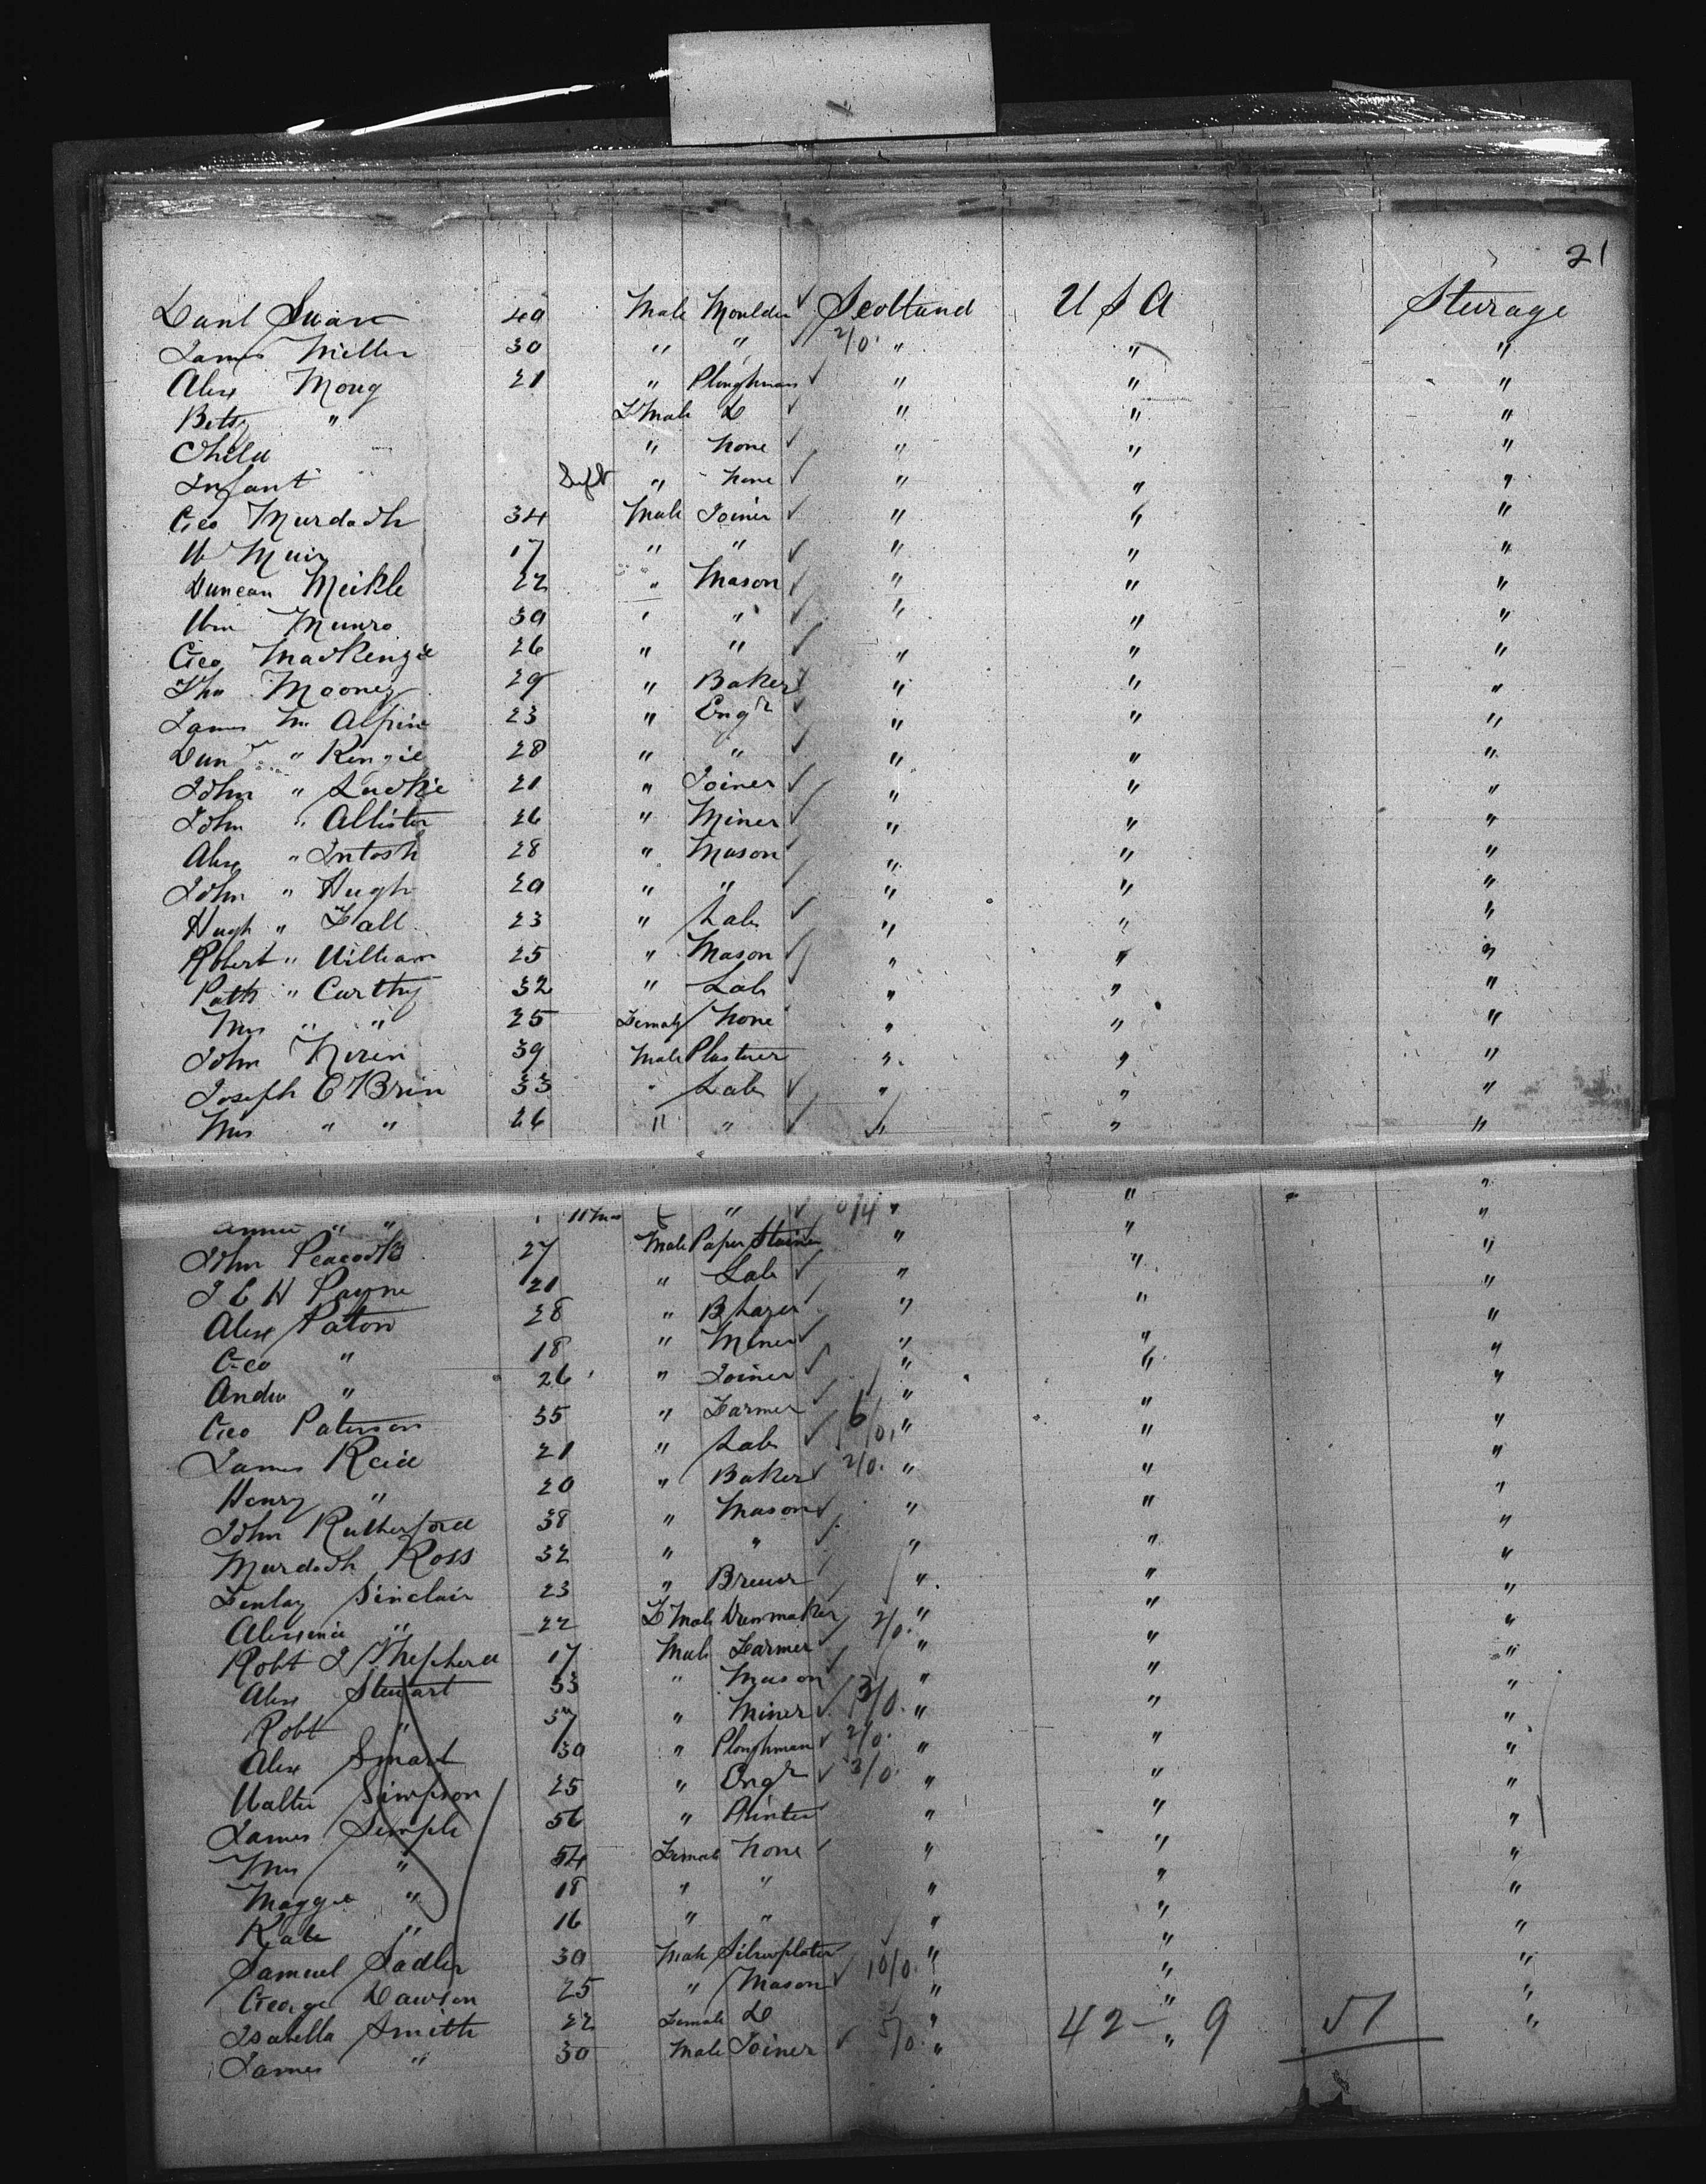 21
Danl Swan 40 Male Moulder Scotland U S A Steerage
James Miller 30 " " 2/0. " " "
Alex Moug 21 " Ploughman " " "
Betsy " F Male D " " "
Child " None " " "
Infant Inft " None " " "
Geo Murdoch 34 Male Joiner " " "
W Muir 17 " " " " "
Duncan Meikle 22 " Mason " " "
Wm Munro 30 " " " " "
Geo MacKenzie 26 " " " " "
Tho Mooney 29 " Baker " " "
James Mc Alpine 23 " Engr " " "
Dun " Kenzie 28 " " " " "
John " Luckie 21 " Joiner " " "
John " Allister 26 " Miner " " "
Alex " Intosh 28 " Mason " " "
John " Hugh 20 " " " " "
Hugh " Fall 23 " Lab " " "
Robert " William 25 " Mason " " "
Patk " Carthy 32 " Lab " " "
Mrs " " 25 Female None " " "
John Niren 39 Male Plasterer " " "
Joseph O'Brien 33 " Lab " " "
Mrs " " 26 " " " " "
Annie " " 11 Mos " 0/4 " " "
John Peacock 27 Male Paper Stainer " " "
J E H Payne 21 " Lab " " "
Alex Paton 28 " B Layer " " "
Geo " 18 " Miner " " "
Andw " 26 " Joiner " " "
Geo Paterson 35 " Farmer " " "
James Reid 21 " Lab 6/0. " " "
Henry " 20 " Baker 2/0. " " "
John Rutherford 38 " Mason " " "
Murdoch Ross 32 " " " " "
Finlay Sinclair 23 " Brewer " " "
Alexina " 22 F Male Dressmaker 2/0. " " "
Robt J Shepherd 17 Male Farmer " " "
Alex Stewart 33 " Mason " " "
Robt " 37 " Miner 3/0. " " "
Alex Smart 30 " Ploughman 2/0. " " "
Walter Simpson 25 " Engr 3/0. " " "
James Semple 56 " Printer " " "
Mrs " 54 Female None " " "
Maggie " 18 " " " " "
Kate " 16 " " " " "
Samuel Sadler 30 Male Silverplater " " "
George Dawson 25 " Mason 10/0. " " "
Isabella Smith 22 Female D " " "
James " 30 Male Joiner 5/0. " " "
42 - 9 51